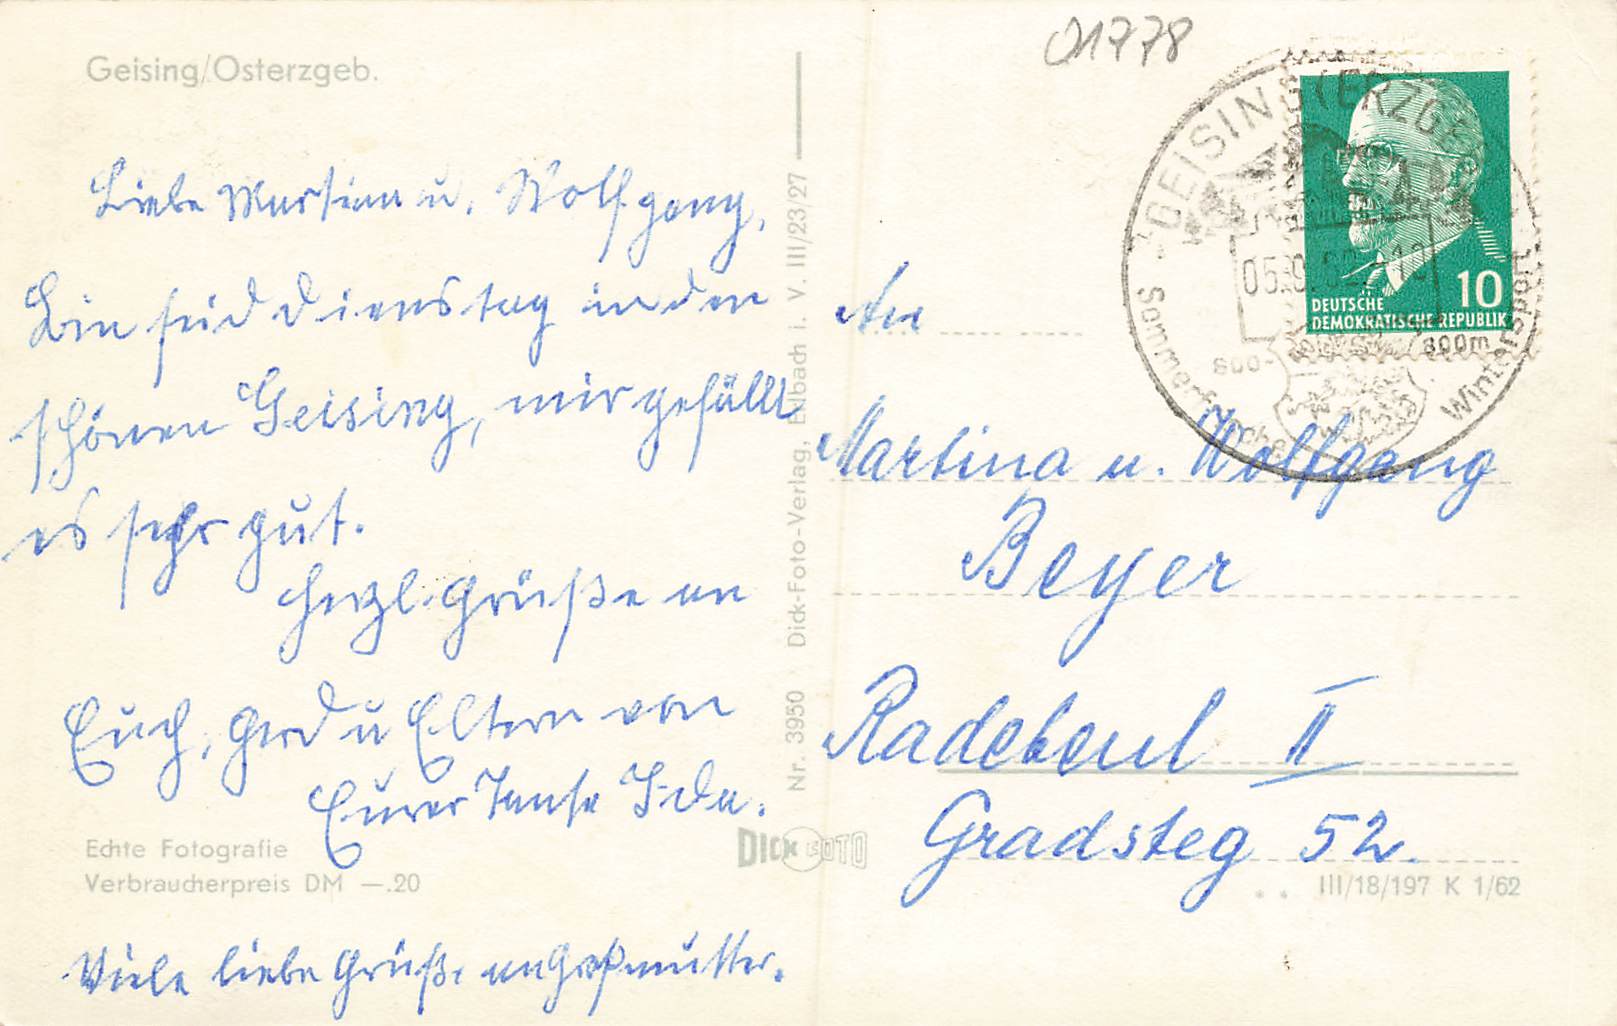 01778
Geising/Osterzgeb.
Liebe Martina u. Wolfgang,
Bin seid Dienstag in den
schönen Geising, mir gefällt
es sehr gut.
Herzl. Grüße an
Euch, Gerd u Eltern von
Eurer Tante Ida.
Echte Fotografie
Verbraucherpreis DM —.20
Viele liebe Grüße an Großmutter.
Nr. 3950 Dick-Foto-Verlag, Erlbach i. V. III/23/27
DICK FOTO
GEISING (ERZGEB
05.9.62-12
800m
Sommerfrische
Wintersport
10
DEUTSCHE
DEMOKRATISCHE REPUBLIK
An
Martina u. Wolfgang
Beyer
Radebeul II
Gradsteg 52.
III/18/197 K 1/62